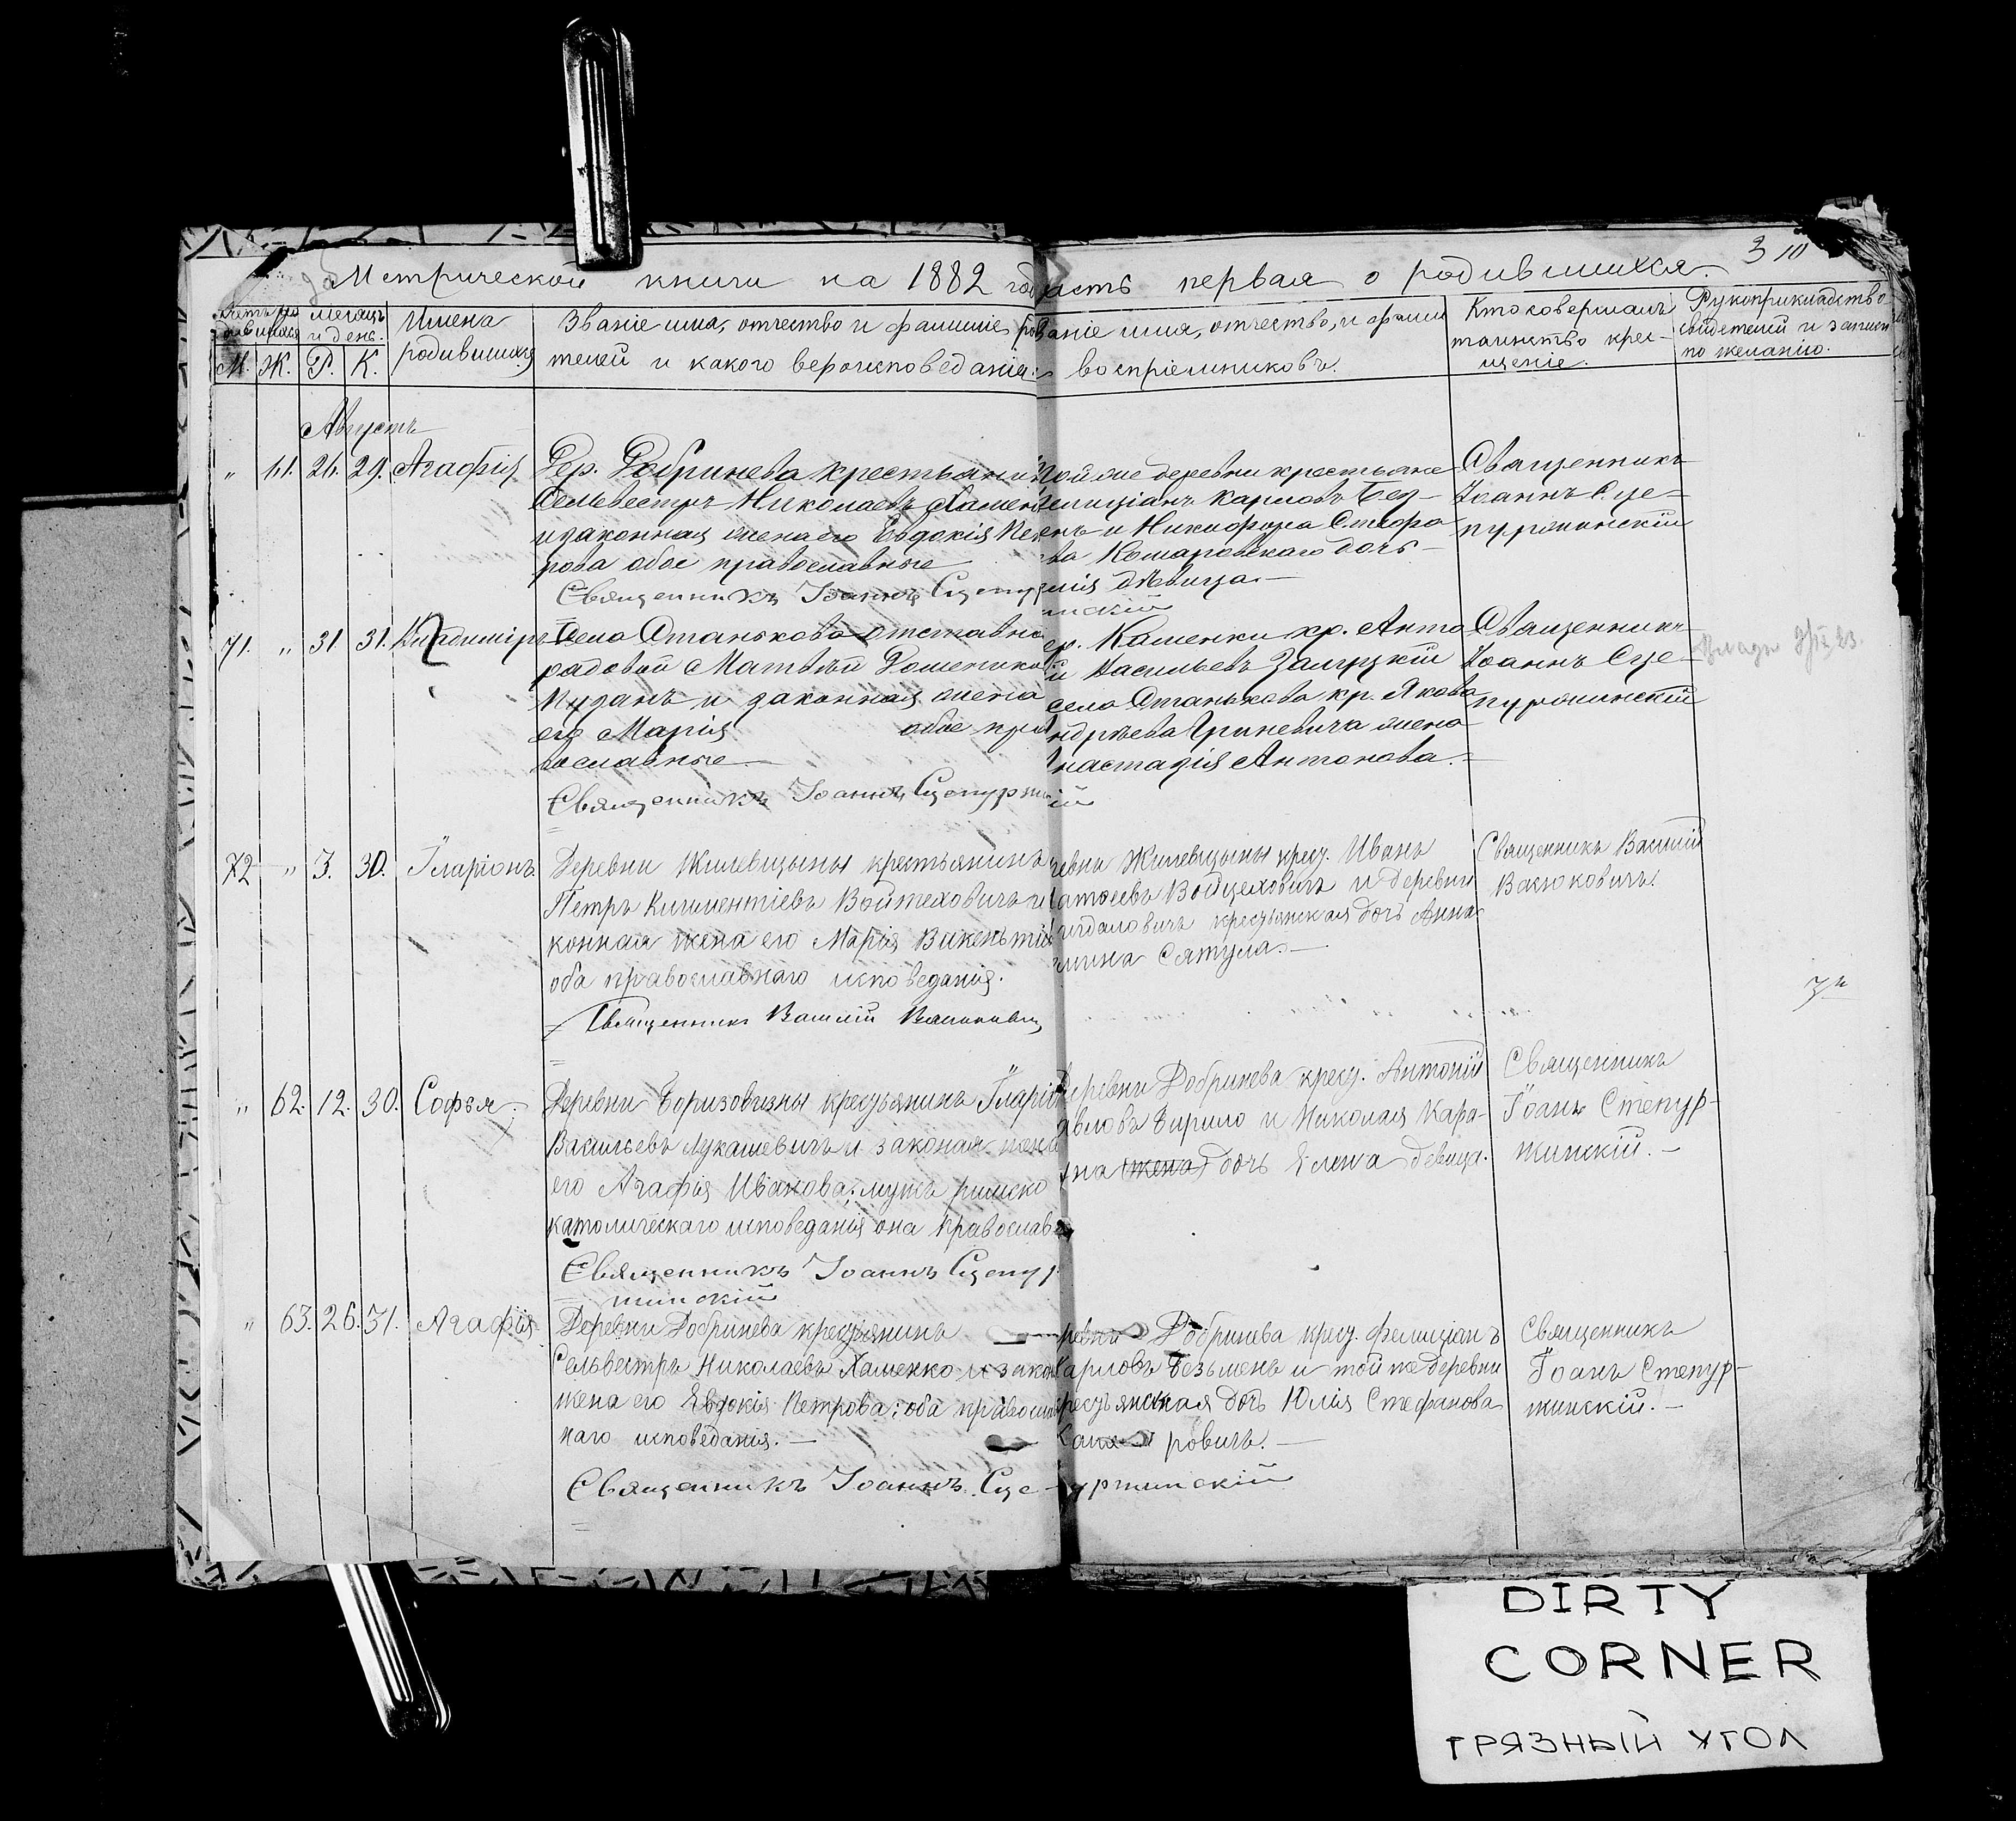 Метрической книги на 1882 год часть первая о родившихся.
3 10
Счетъ ро
дившихся
месяцъ
и день.
М. Ж. Р. К.
Имена
родившихся
Званіе имя, отчество и фамиліе род
телей и какого вероисповеданія:
ваніе имя, отчество, и фами
воспріемниковъ.
Кто совершалъ
таинство кре-
щеніе.
Рукоприкладство
свидетелей и записи
по желанію.
Августъ
" 61. 26. 29. Агафія
Дер. Добринева крестьянин
Сельвестръ Николаевъ Хаменк
и законная жена его Евдокія Пет
рова обое православные
Священникъ Іоаннъ Сцепур
той же деревни крестьяне
елиціанъ Карловъ Без-
енъ и Никифора Стефа
ва Комаровскаго дочь
лія дѣвица.—
жинскій
Священникъ
Іоаннъ Сце-
пуржинскій
71. " 31. 31. Владиміръ
Село Станьково отставно
рядовой Матвѣй Доменико
Кузанъ и законная жена
его Марія обое пра
вославные
Священникъ Іоаннъ Сцепуржин
ер. Каменки кр. Анто
й Васильевъ Залуцкій
село Станькова кр. Якова
ндрѣева Гриневича жена
настазія Антонова.—
ій
Священникъ
Іоаннъ Сце-
пуржинскій
72 " 3. 30. Іларіонъ.
Деревни Жилевщины крестьянинъ
Петръ Климентіевъ Войтеховичъ и
конная жена его Марія Викентіе
оба православнаго исповеданія.
Священникъ Василій Васюкович
ревни Жилевщины крес. Иванъ
атфеевъ Войцеховичъ и деревни
игдаловичъ крестьянская дочь Анна
мина Сятула.—
Священникъ Василій
Васюковичъ.
" 62. 12. 30. Софья.
Деревни Боризовизны крестьянинъ Іларіо
Васильевъ Лукашевичъ и законая жена
его Агафія Иванова; мужъ римско
католическаго исповеданія она православн
Священникъ Іоаннъ Сцепур
жинскій
Деревни Добринева крес. Антоній
авловъ Бирило и Николая Кара-
на (жена) дочь Елена девица.
Священникъ
Іоанъ Степур-
жинскій.—
" 63. 26. 31. Агафія
Деревни Добринева крестьянинъ
Сельвестръ Николаевъ Хаменко и закон
жена его Евдокія Петрова; оба православ
наго исповеданія.—
Священникъ Іоаннъ Сце-
ревни Добринева крес. Фелиціанъ
арловъ Безьменъ и той же деревни
рестьянская дочь Юлія Стефанова
ровичъ.—
пуржинскій
Священникъ
Іоанъ Степур-
жинскій.—
DIRTY
CORNER
ГРЯЗНЫЙ УГОЛ